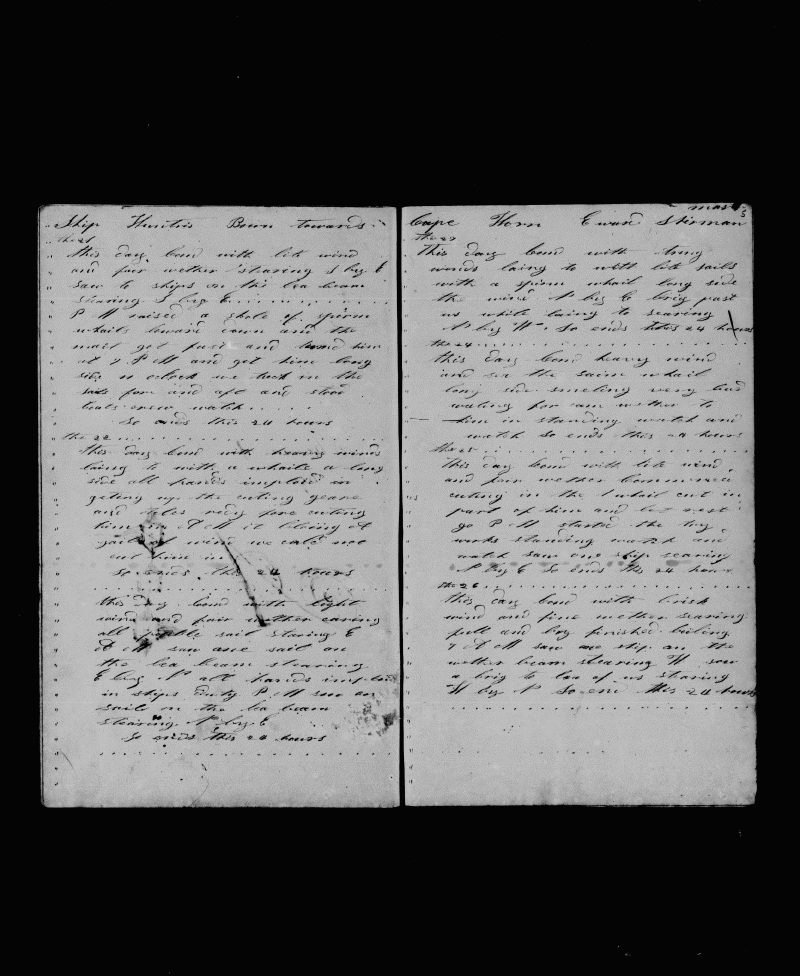 Ship Huntris Bown towards
the 21
this day comd with lite wind
and fair wether stearing S by E
saw to ships on the lea beam
stearing S by E
P M raised a shole of spirm
whails loward down and the
mait got fast and
at 7 P M and got him long
side 11 oclock we took in the
sails fore and aft and stood
boats crew watch
So ends this 24 hours
the 22
this day comd with heavy winds
laing to with a whaile a long
side all hands imploid in
geting up the cuting geare
and tiles redy fore cuting
him in A M it bloing A
gail of wind we cald not
cut him in
So ends this 24 hours
this day comd with light
wind and fair wether caring
all posble sail stearing E
A M saw one sail on
the lea beam stearing
E by N all hands imploid
in ships duty P M saw on
sail on the lea beam
stearing N by E
So ends this 24 hours
mast
5
Cape Horn Eward Stirman
the 23
this day comd with strong
winds laing to with lite sails
with a spirm whail long side
the wind N by E brig past
us while laing to stearing
N by W. So ends this 24 hours
the 24
this day comd heavy wind
and sea the saim whail
long side smeling very bad
waiting for wether to
him in standing watch and
watch So ends this 24 hours
the 25
this day comd with lite wind
and fair wether Commenced
cuting in the whail cut in
part of him and let rest
go P M started the try
works standing watch and
watch saw one ship stearing
N by E So ends this 24 hours
the 26
this day comd with brisk
wind and fine wether stearing
full and by finished boiling
7 A M saw one ship on the
wether beam stearing W saw
a brig to lea of us stearing
W by N So end this 24 hours